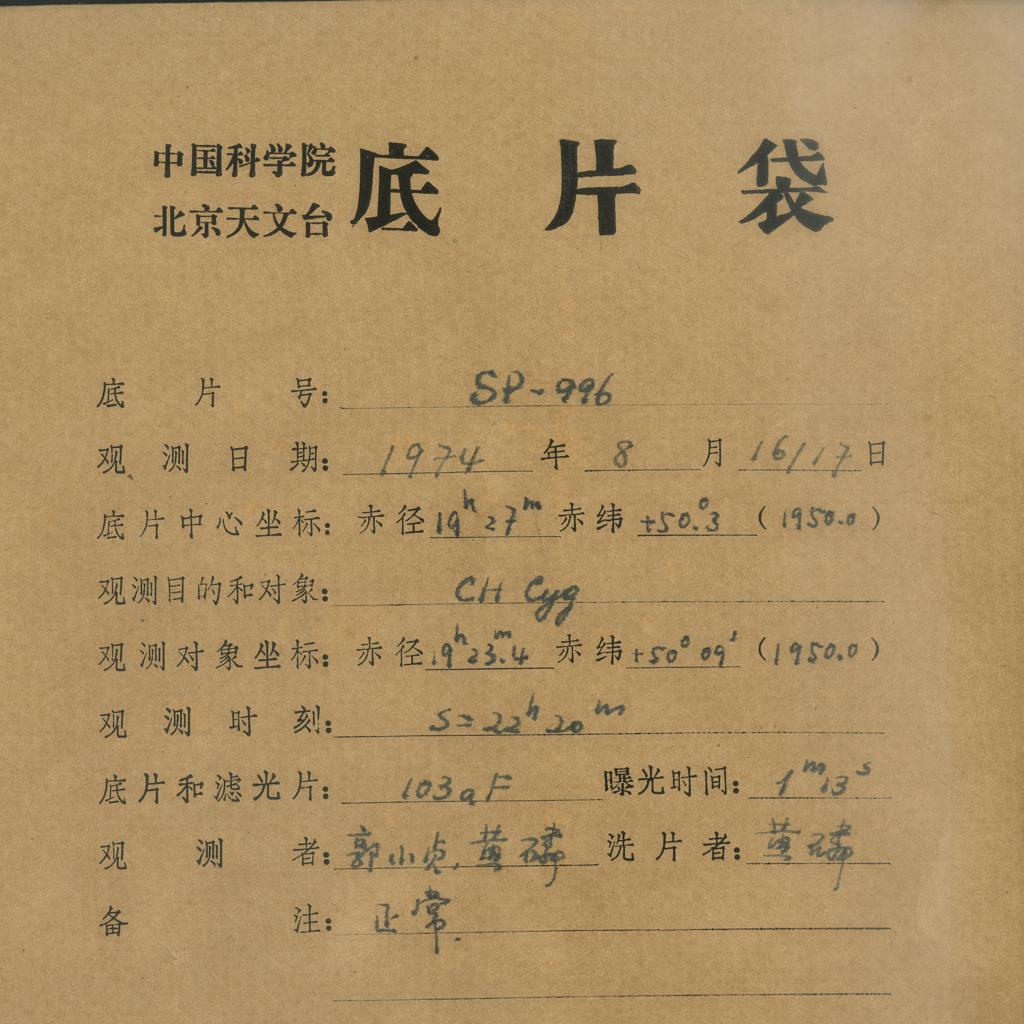 中国科学院
北京天文台
底片袋
底片号：SP-996
观测日期：1974年8月16/17日
底片中心坐标：赤径19ʰ27ᵐ赤纬+50.°3（1950.0）
观测目的和对象：CH Cyg
观测对象坐标：赤径19ʰ23.ᵐ4赤纬+50°09′（1950.0）
观测时刻：S=22ʰ20ᵐ
底片和滤光片：103aF 曝光时间：1ᵐ13ˢ
观测者：郭小贞、黄磷 洗片者：黄磷
备注：正常.